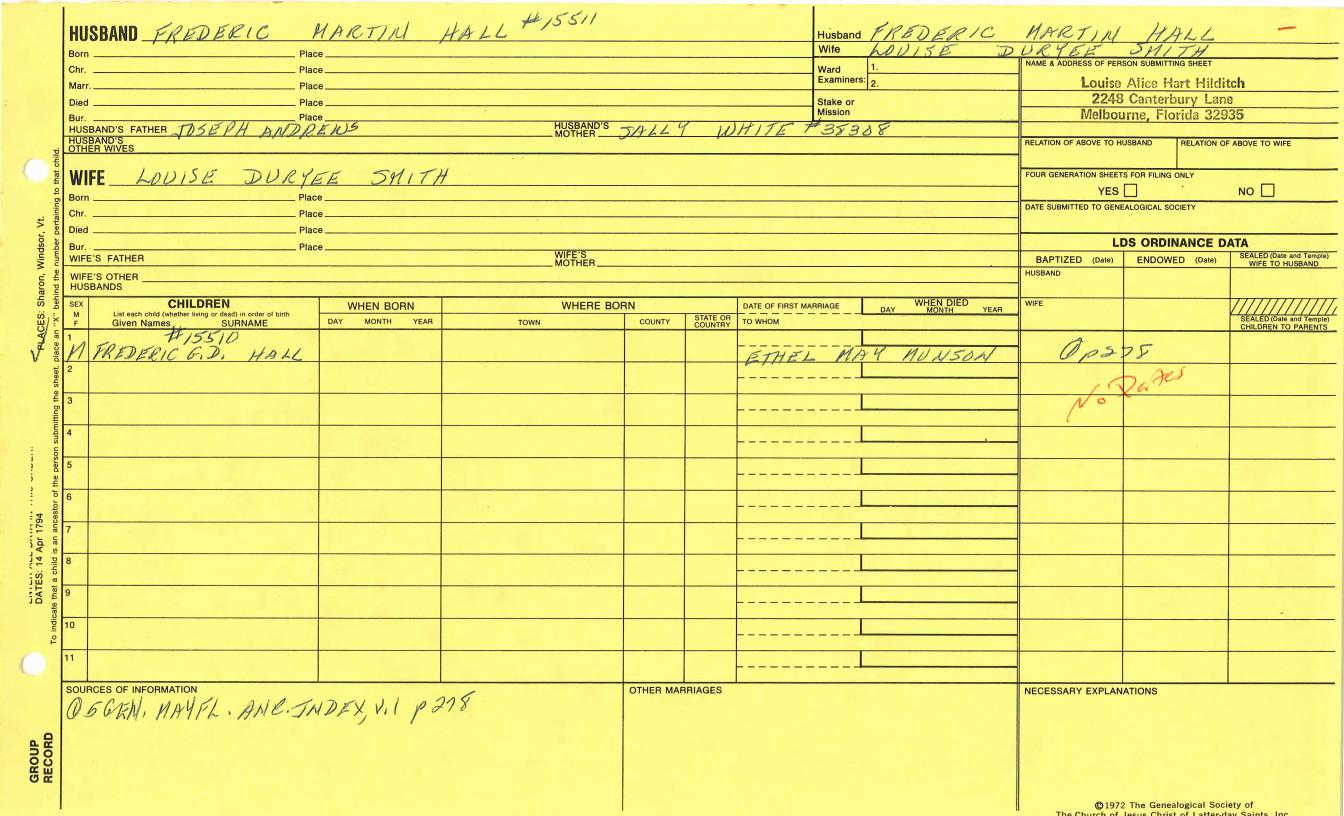 HUSBAND FREDERIC MARTIN HALL #15511
Born Place
Chr. Place
Marr. Place
Died Place
Bur. Place
HUSBAND'S FATHER JOSEPH ANDREWS HUSBAND'S MOTHER SALLY WHITE #35308
HUSBAND'S OTHER WIVES
Husband FREDERIC MARTIN HALL
Wife LOUISE DURYEE SMITH
Ward Examiners: 1.
2.
Stake or Mission
NAME & ADDRESS OF PERSON SUBMITTING SHEET
Louise Alice Hart Hilditch
2248 Canterbury Lane
Melbourne, Florida 32935
RELATION OF ABOVE TO HUSBAND RELATION OF ABOVE TO WIFE
FOUR GENERATION SHEETS FOR FILING ONLY
YES NO
DATE SUBMITTED TO GENEALOGICAL SOCIETY
WIFE LOUISE DURYEE SMITH
Born Place
Chr. Place
Died Place
Bur. Place
WIFE'S FATHER WIFE'S MOTHER
WIFE'S OTHER HUSBANDS
LDS ORDINANCE DATA
BAPTIZED (Date) ENDOWED (Date) SEALED (Date and Temple) WIFE TO HUSBAND
HUSBAND
WIFE
SEALED (Date and Temple) CHILDREN TO PARENTS
SEX M F
CHILDREN
List each child (whether living or dead) in order of birth
Given Names SURNAME
WHEN BORN
DAY MONTH YEAR
WHERE BORN
TOWN COUNTY STATE OR COUNTRY
DATE OF FIRST MARRIAGE
TO WHOM
WHEN DIED
DAY MONTH YEAR
1 #15510
M FREDERIC G.D. HALL ETHEL MAY MUNSON p278
No Dates
2
3
4
5
6
7
8
9
10
11
SOURCES OF INFORMATION
5 GEN. MAYFL. ANC. INDEX, V.1 p 278
OTHER MARRIAGES
NECESSARY EXPLANATIONS
©1972 The Genealogical Society of
The Church of Jesus Christ of Latter-day Saints, Inc.
PLACES: Sharon, Windsor, Vt.
DATES: 14 Apr 1794
To indicate that a child is an ancestor of the person submitting the sheet, place an "X" behind the number pertaining to that child.
GROUP
RECORD